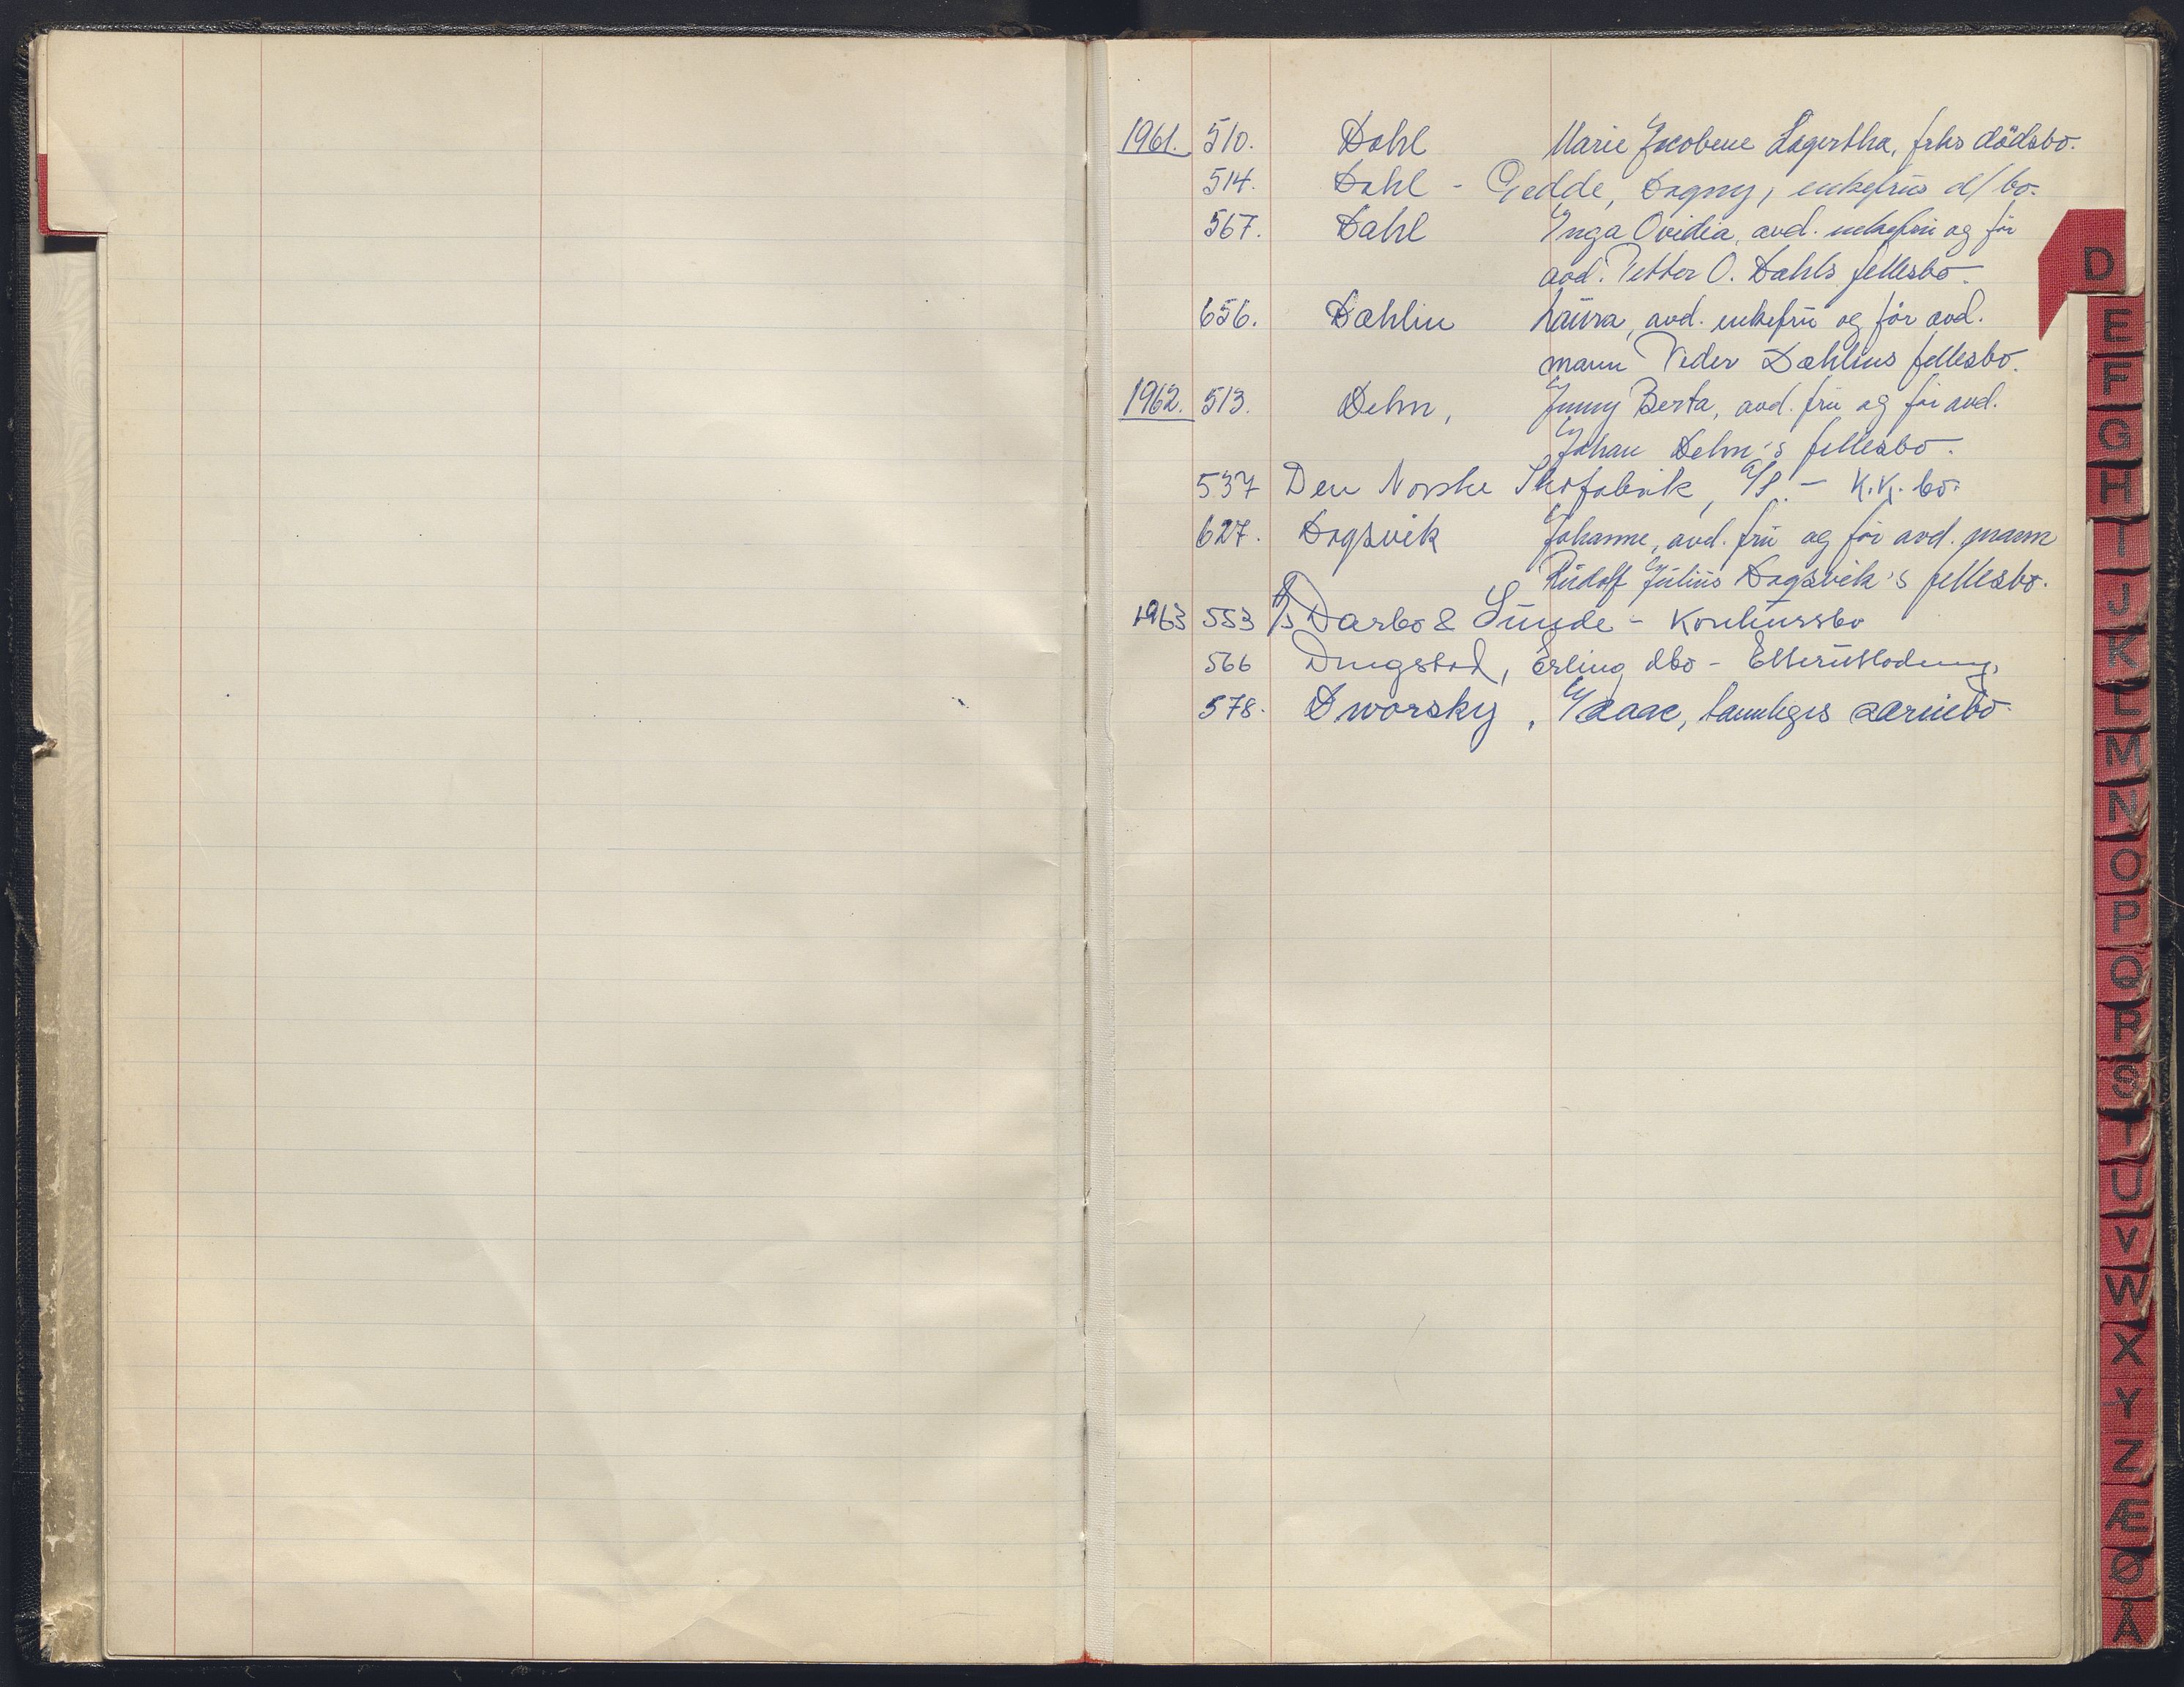 1961. 510. Dahl Marie Jacobene Lagertha, frks dödsbo.
514. Dahl - Gedde, Dagny, enkefrus d/bo.
567. Dahl Inga Ovidia, avd. enkefru og før
avd. Petter O. Dahls fellesbo.
656. Dahlin Laura, avd. enkefru og før avd.
mann Peder Dahlins fellesbo.
1962. 513. Dehn, Jenny Berta, avd. fru og før avd.
Johan Dehn's fellesbo.
537 Den Norske Skofabrik, A/S. - K.K. bo.
627. Dagsvik Johanne, avd. fru og før avd. mann
Rudolf Julius Dagsvik's fellesbo.
1963 553 A/S Darbo & Sunde - Konkursbo
566 Dingstad, Erling dbo - Etterutlodning.
578. Dworsky, Isaac, tannleges særiebo.
D
E
F
G
H
I
J
K
L
M
N
O
P
Q
R
S
T
U
V
W
X
Y
Z
Æ
Ø
Å